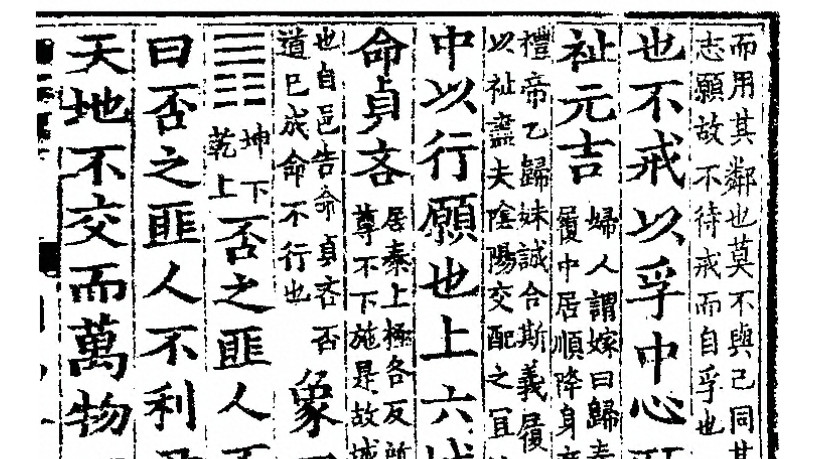 而用其鄰也莫不與己同其
志願故不待戒而自孚也
也不戒以孚中心
祉元吉
婦人謂嫁曰歸泰
履中居順降身
禮帝乙歸妹誠合斯義履
以祉盡夫陰陽交配之宜
中以行願也上六城
命貞吝
居泰上極各反所
尊不下施是故城
也自邑告命貞吝否
道已成命不行也
象
䷋
坤下
乾上
否之匪人不
曰否之匪人不利
天地不交而萬物